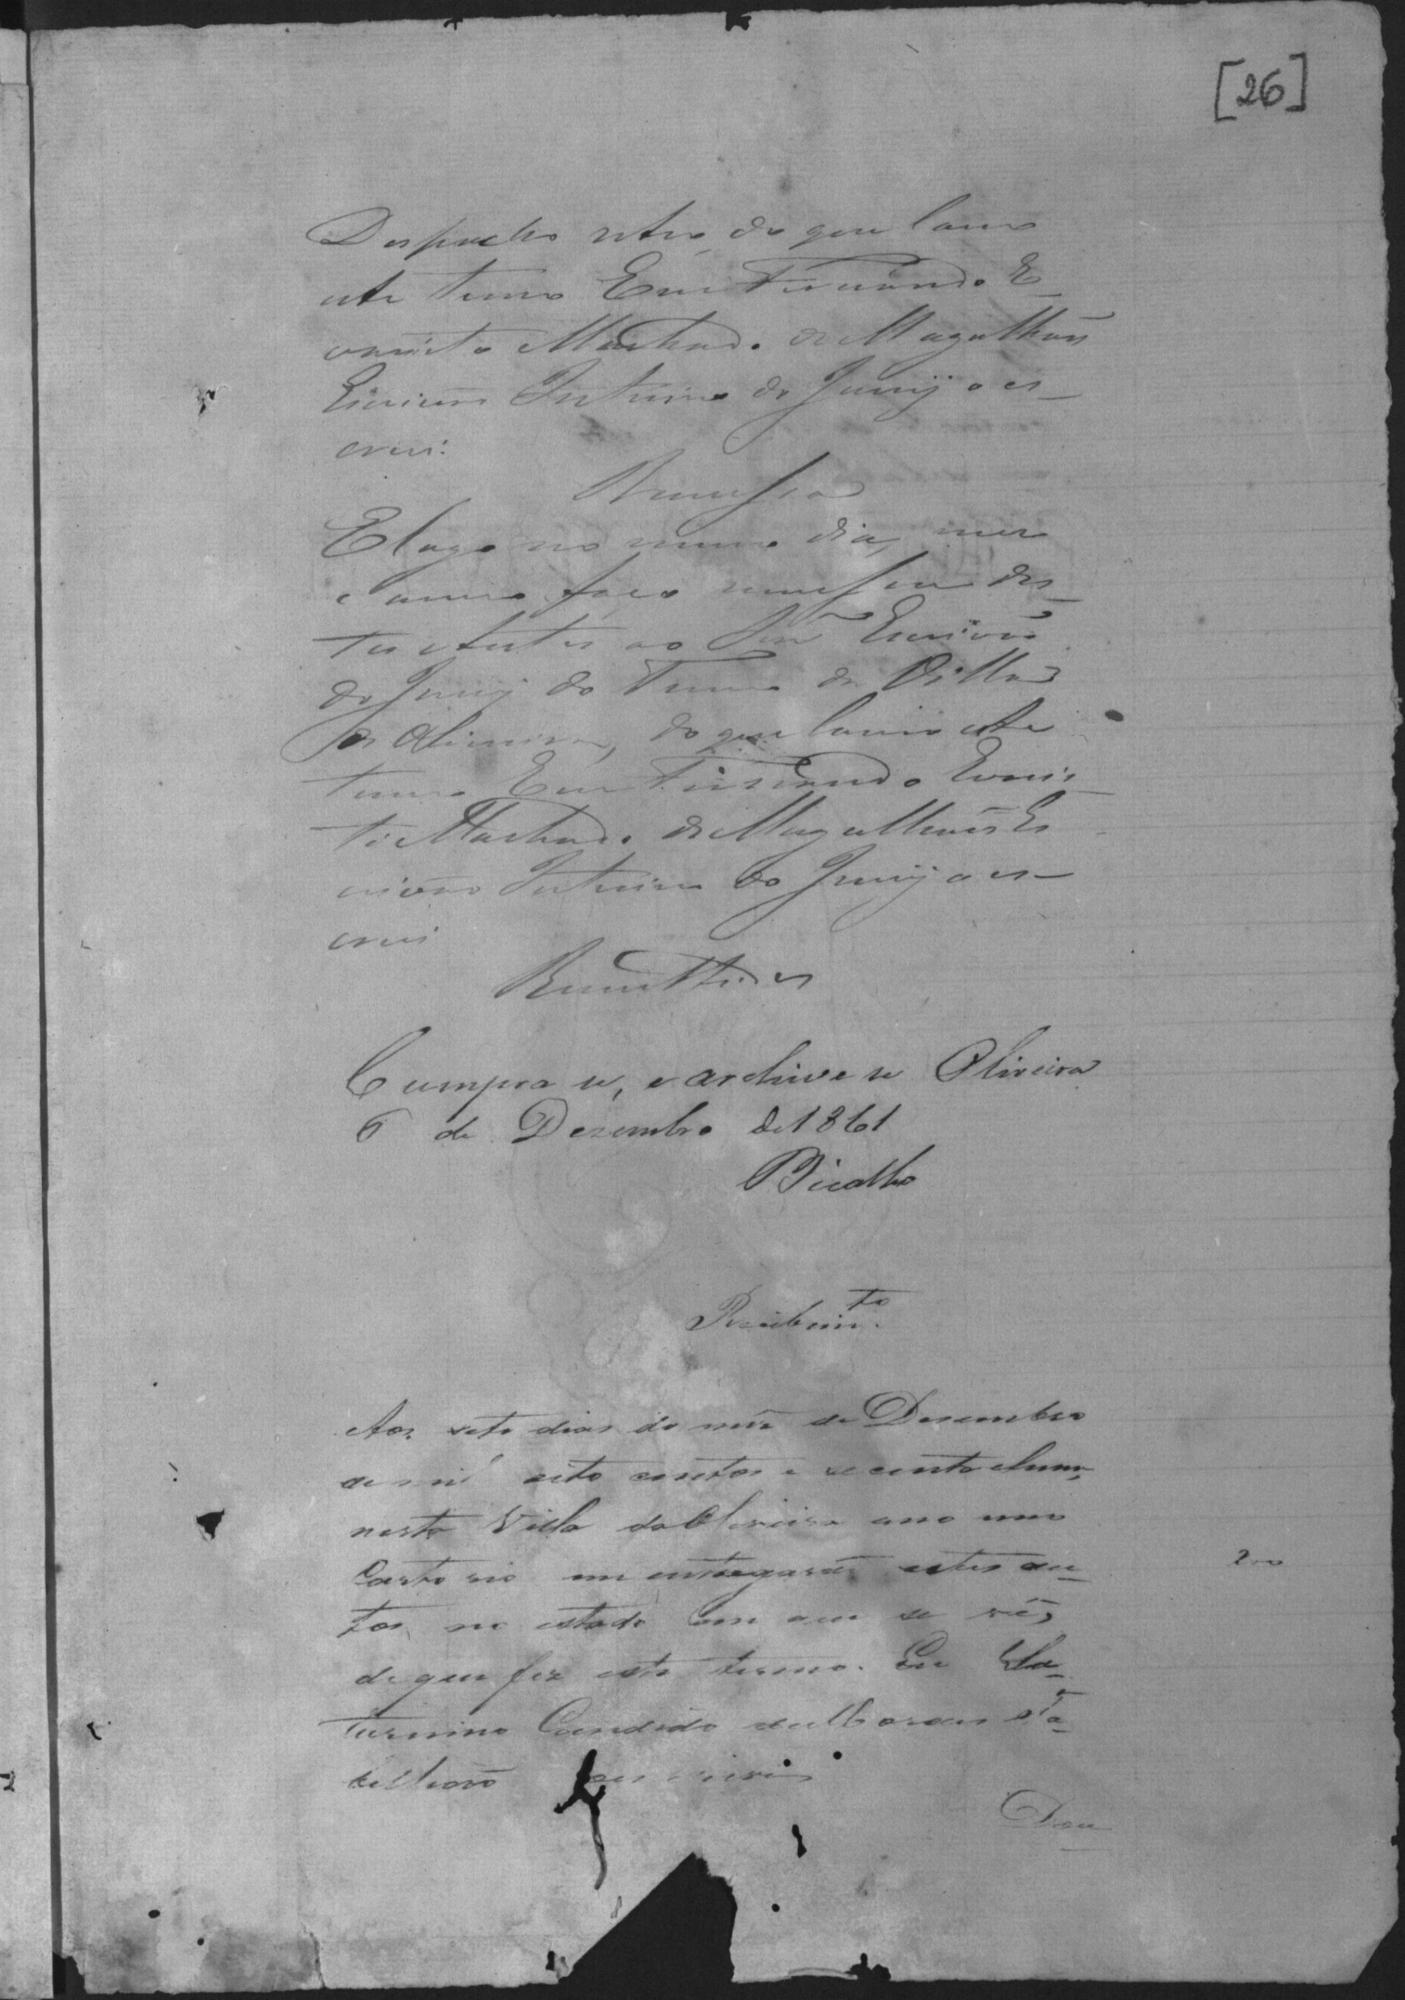 [26]
Despacho retro, do que lavro
este termo Eu Fernando E-
varisto Machado de Magalhães
Escrivão Interino do Jury o es-
crevi.
Remessa
E logo no mesmo dia, mez
e anno faço remessa des-
tes Autos ao Snr Escrivão
do Jury do Termo da Villa
de Oliveira, do que lavro este
termo Eu Fernando Evaris-
to Machado de Magalhães Es-
crivão Interino do Jury o es-
crevi
Remettidos
Cumpra se, e archive se Oliveira
6 de Dezembro de 1861
Bicalho
Recebim.to
Aos sete dias do mês de Desembro
de mil oito centos e secenta e hum,
nesta Villa da Oliveira em meo
Cartorio me entregarão estes au-
tos no estado em que se vê,
de que fiz este termo. Eu Sa-
turnino Candido de Moraes Ta-
bellião escrevi
200
Dou